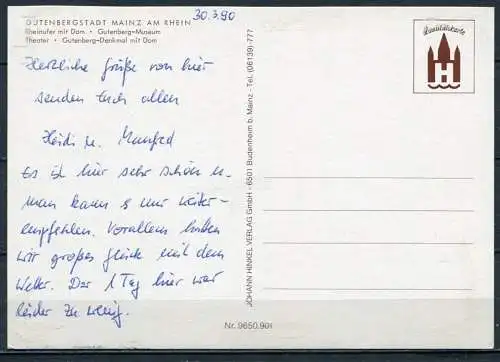 30.3.90
GUTENBERGSTADT MAINZ AM RHEIN
Rheinufer mit Dom • Gutenberg-Museum
Theater • Gutenberg-Denkmal mit Dom
Herzliche Grüße von hier
senden Euch allen
Heidi u. Manfred
Es ist hier sehr schön u.
man kann es nur weiter-
empfehlen. Vorallem hatten
wir großes Glück mit dem
Wetter. Der 1 Tag hier war
leider zu wenig.
Qualitätskarte
H
JOHANN HINKEL VERLAG GmbH · 6501 Budenheim b. Mainz · Tel. (06139) 777
Nr. 9650.901